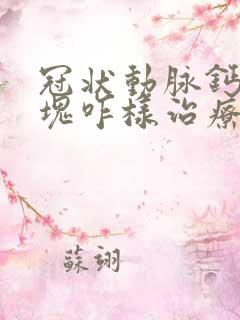 冠状動脉鈣
塊咋様治療
蘇翊